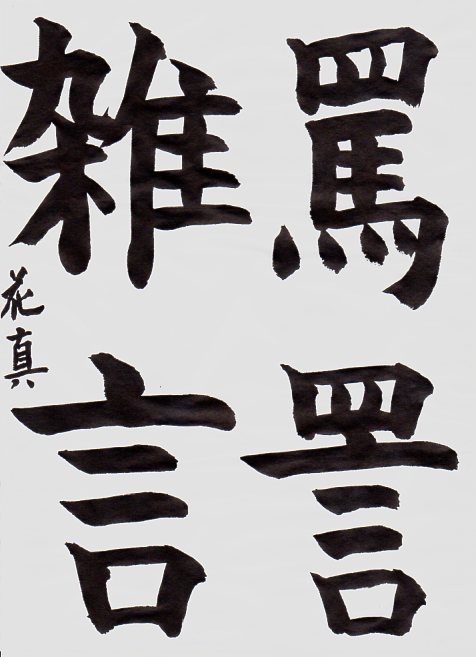 罵詈
雑言
花真